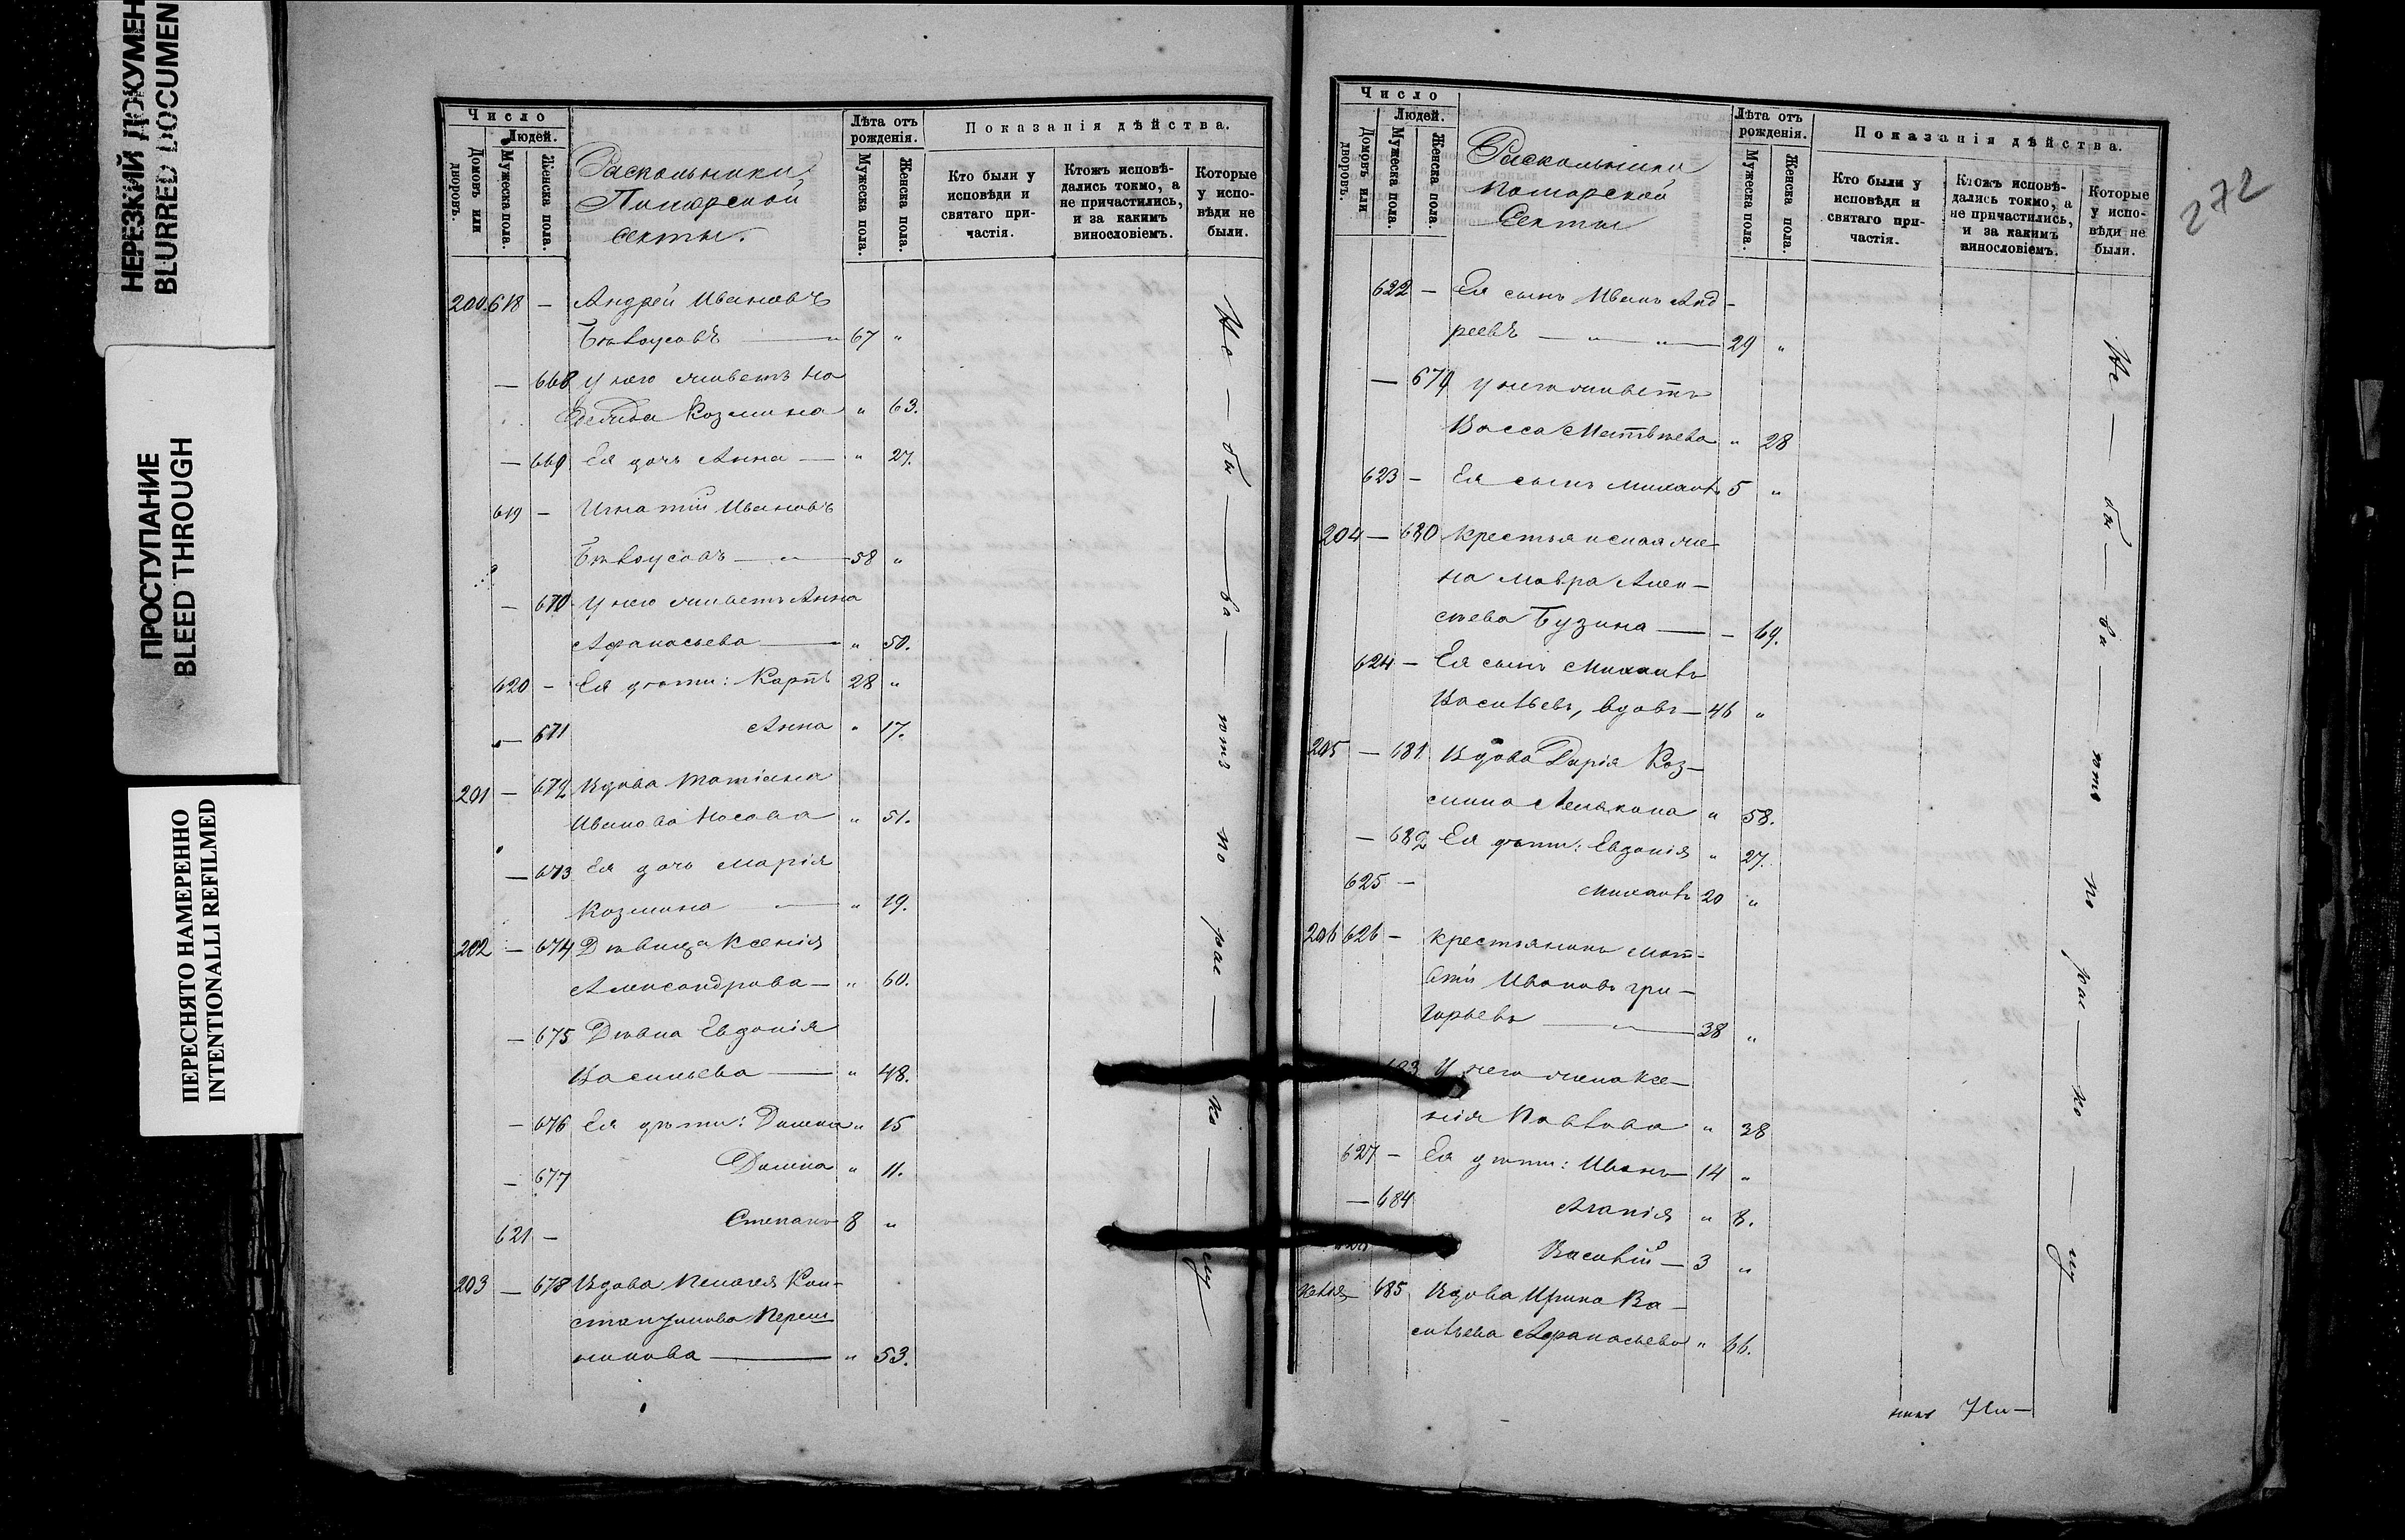 НЕРЕЗКИЙ ДОКУМЕН
BLURRED DOCUMEN
ПРОСТУПАНИЕ
BLEED THROUGH
ПЕРЕСНЯТО НАМЕРЕННО
INTENTIONALLI REFILMED
Число
Людей.
Домовъ или дворовъ.
Мужеска пола.
Женска пола.
Раскольники
Поморской
секты.
Лѣта отъ рожденія.
Мужеска пола.
Женска пола.
Показанія дѣйства.
Кто были у исповѣди и святаго причастія.
Ктожъ исповѣдались токмо, а не причастились, и за какимъ винословіемъ.
Которые у исповѣди не были.
200. 618 — Андрей Ивановъ
Бѣлоусовъ — 67 "
— 668 у него живетъ на
Козмина " 63.
— 669 Ея дочь Анна — " 27.
619 — Игнатій Ивановъ
Бѣлоусовъ — " — 58 "
— 670 У него живетъ Анна
Афанасьева — " 50.
620 — Ея дѣти: Карпъ 28 "
— 671 Анна " 17.
201 — 672 Вдова Татіана
Иванова Носова " 51.
— 673 Ея дочь Марія
Козмина — " 19.
202 — 674 Дѣвица Ксенія
Александрова — " 60.
— 675 Дѣвка Евдокія
Васильева — " 48.
— 676 Ея дѣти: " 15
— 677 " 11.
621 — Степанъ 8 "
203 — 678 Вдова Пелагея Кон-
стантинова
— " 53.
Не — бы — ва — етъ по рас — ко — лу —
Число
Людей.
Домовъ или дворовъ.
Мужеска пола.
Женска пола.
Раскольники
Поморской
Секты
Лѣта отъ рожденія.
Мужеска пола.
Женска пола.
Показанія дѣйства.
Кто были у исповѣди и святаго причастія.
Ктожъ исповѣдались токмо, а не причастились, и за какимъ винословіемъ.
Которые у исповѣди не были.
272
622 — Ея сынъ Иванъ Анд-
реевъ — " — " — 29 "
— 679 у него живетъ
Васса Матвѣева " 28
623 — Ея сынъ Михаилъ 5 "
204 — 680 Крестьянская же-
на Мавра Алек-
сѣева Бузина — — 69.
624 — Ея сынъ Михаилъ
Васильевъ, вдовъ — 46 "
205 — 681 Вдова Дарія Коз-
мина " 58.
— 682 Ея дѣти: Евдокія " 27.
625 — Михаилъ 20 "
206 626 — Крестьянинъ Мат-
вѣй Ивановъ Гри-
горьевъ — " — 38 "
683 У него жена Ксе-
нія Павлова " 38
627 — Ея дѣти: Иванъ — 14 "
— 684 Агапія " 8.
Василій — 3 "
685 Вдова Ирина Ва-
сильева Афанасьева " 66.
Не — бы — ва — етъ по рас — ко — лу —